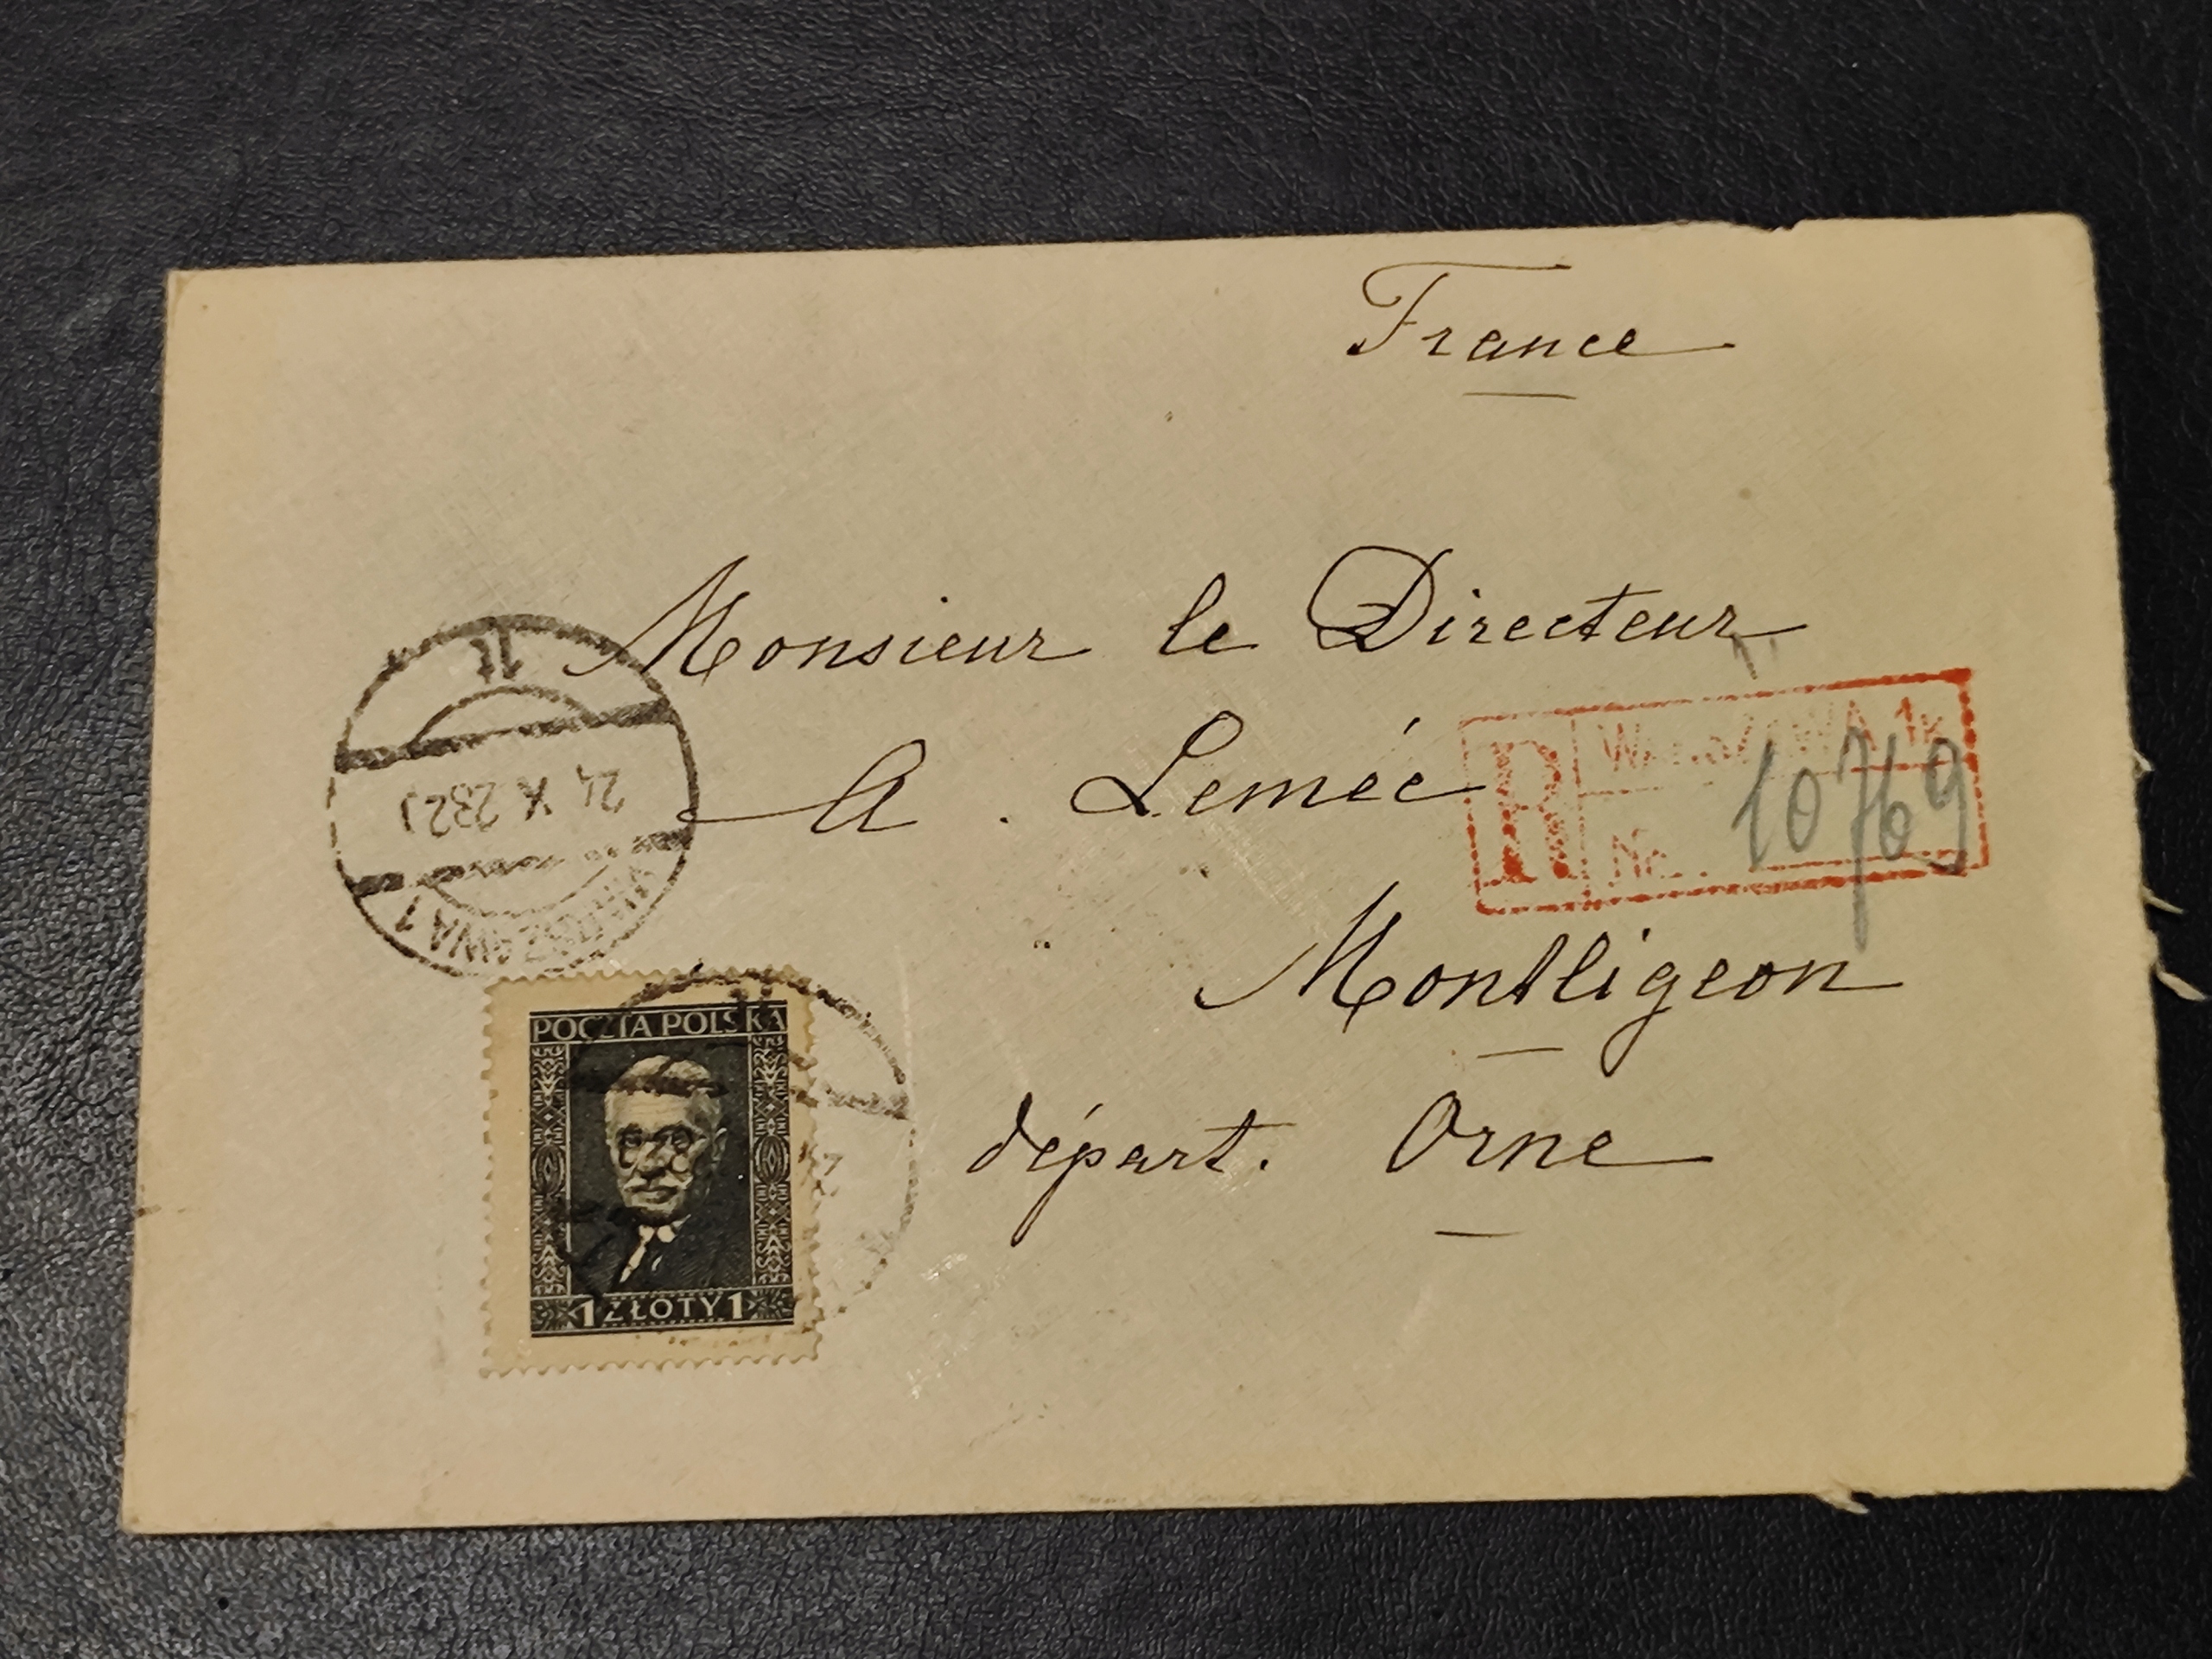 France
Monsieur le Directeur
A. Lemée
Montligeon
départ. Orne
R
WARSZAWA 1
No.
10769
1t
24 X 28 21
WARSZAWA 1
POCZTA POLSKA
1 ZŁOTY 1